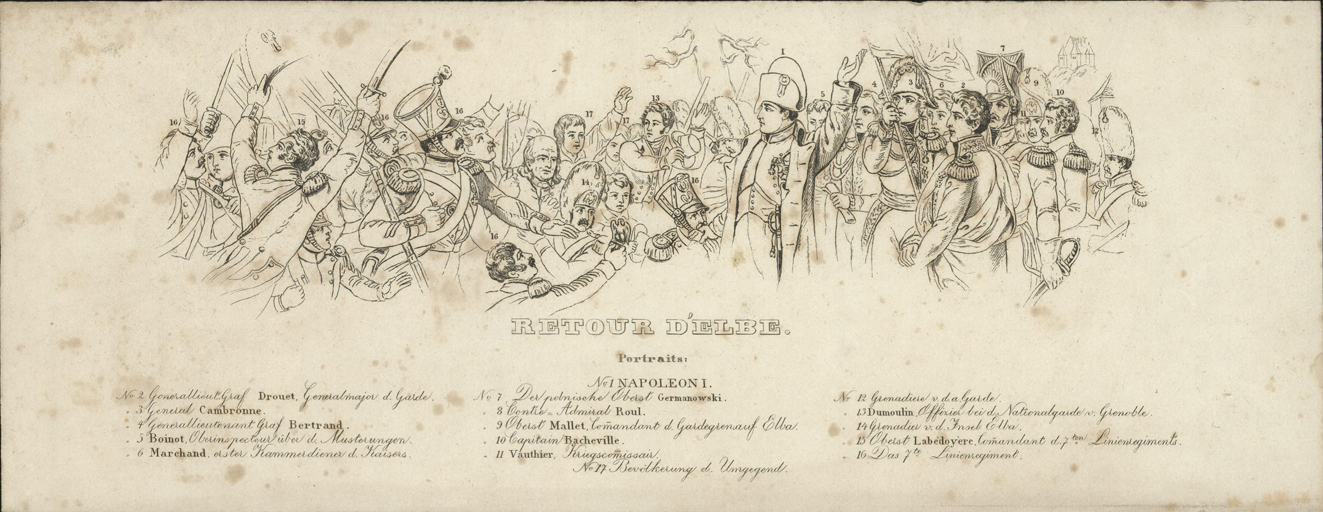 1
7
16
15
16
16
17
17
13
5
4
3
6
2
9
10
12
14
16
16
RETOUR D'ELBE.
Portraits:
No 1 NAPOLEON I.
No 2 Generallieut. Graf Drouet, Generalmajor d. Garde.
„ 3 General Cambronne.
„ 4 Generallieutenant Graf Bertrand.
„ 5 Boinot, Oberinspecteur über d. Musterungen.
„ 6 Marchand, erster Kammerdiener d. Kaisers.
No 7 Der polnische Oberst Germanowski.
„ 8 Contre-Admiral Roul.
„ 9 Oberst Mallet, Com̄andant d. Gardegren. auf Elba.
„ 10 Capitain Bacheville.
„ 11 Vauthier, Kriegscom̄issair.
No 12 Grenadiere v. d. a. Garde.
„ 13 Dumoulin, Offizier bei d. Nationalgarde v. Grenoble.
„ 14 Grenadier v. d. Insel Elba.
„ 15 Oberst Labédoyère, Com̄andant d. 7ten Linienregiments.
„ 16 Das 7te Linienregiment.
No 17 Bevölkerung d. Umgegend.